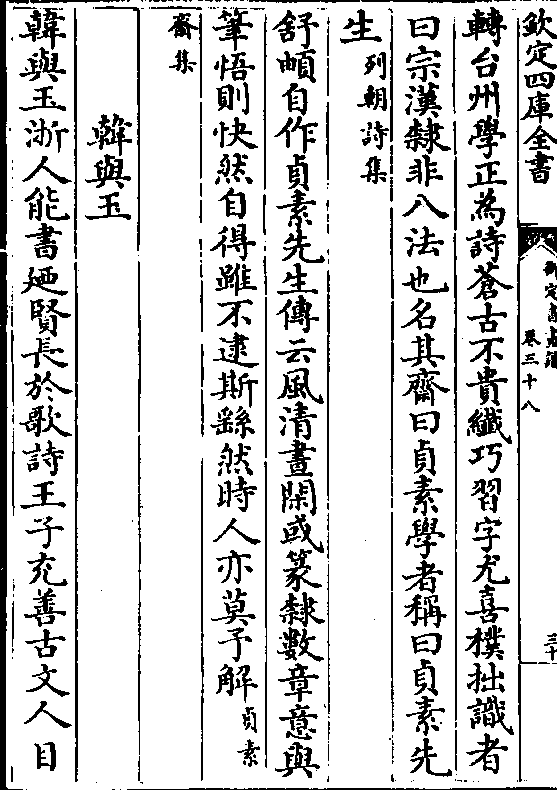 欽定四庫全書
卷三十八
三十
轉台州學正為詩蒼古不貴纖巧習字尤喜樸拙識者
曰宗漢隸非八法也名其齋曰貞素學者稱曰貞素先
生列朝詩集
舒頔自作貞素先生傳云風清晝閑或篆隸數章意與
筆悟則快然自得雖不逮斯繇然時人亦莫予解貞素
齋集
韓與玉
韓與玉浙人能書廼賢長於歌詩王子充善古文人目